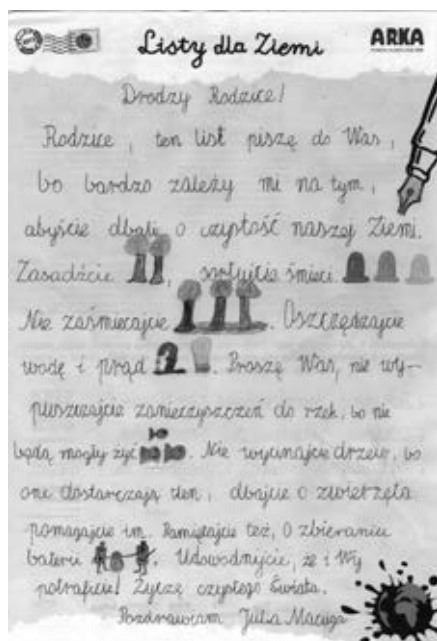 Listy dla Ziemi
ARKA
Drodzy Rodzice!
Rodzice, ten list piszę do Was,
bo bardzo zależy mi na tym,
abyście dbali o czystość naszej Ziemi.
Zasadźcie , sortujcie śmieci
Nie zaśmiecajcie . Oszczędzajcie
wodę i prąd . Proszę Was, nie wy-
puszczajcie zanieczyszczeń do rzek, bo nie
będą mogły żyć . Nie wycinajcie drzew, bo
one dostarczają tlen, dbajcie o zwierzęta
pomagajcie im. Pamiętajcie też, o zbieraniu
baterii . Udowodnijcie, że i Wy
potraficie! Życzę czystego Świata.
Pozdrawiam Julia Maciąga